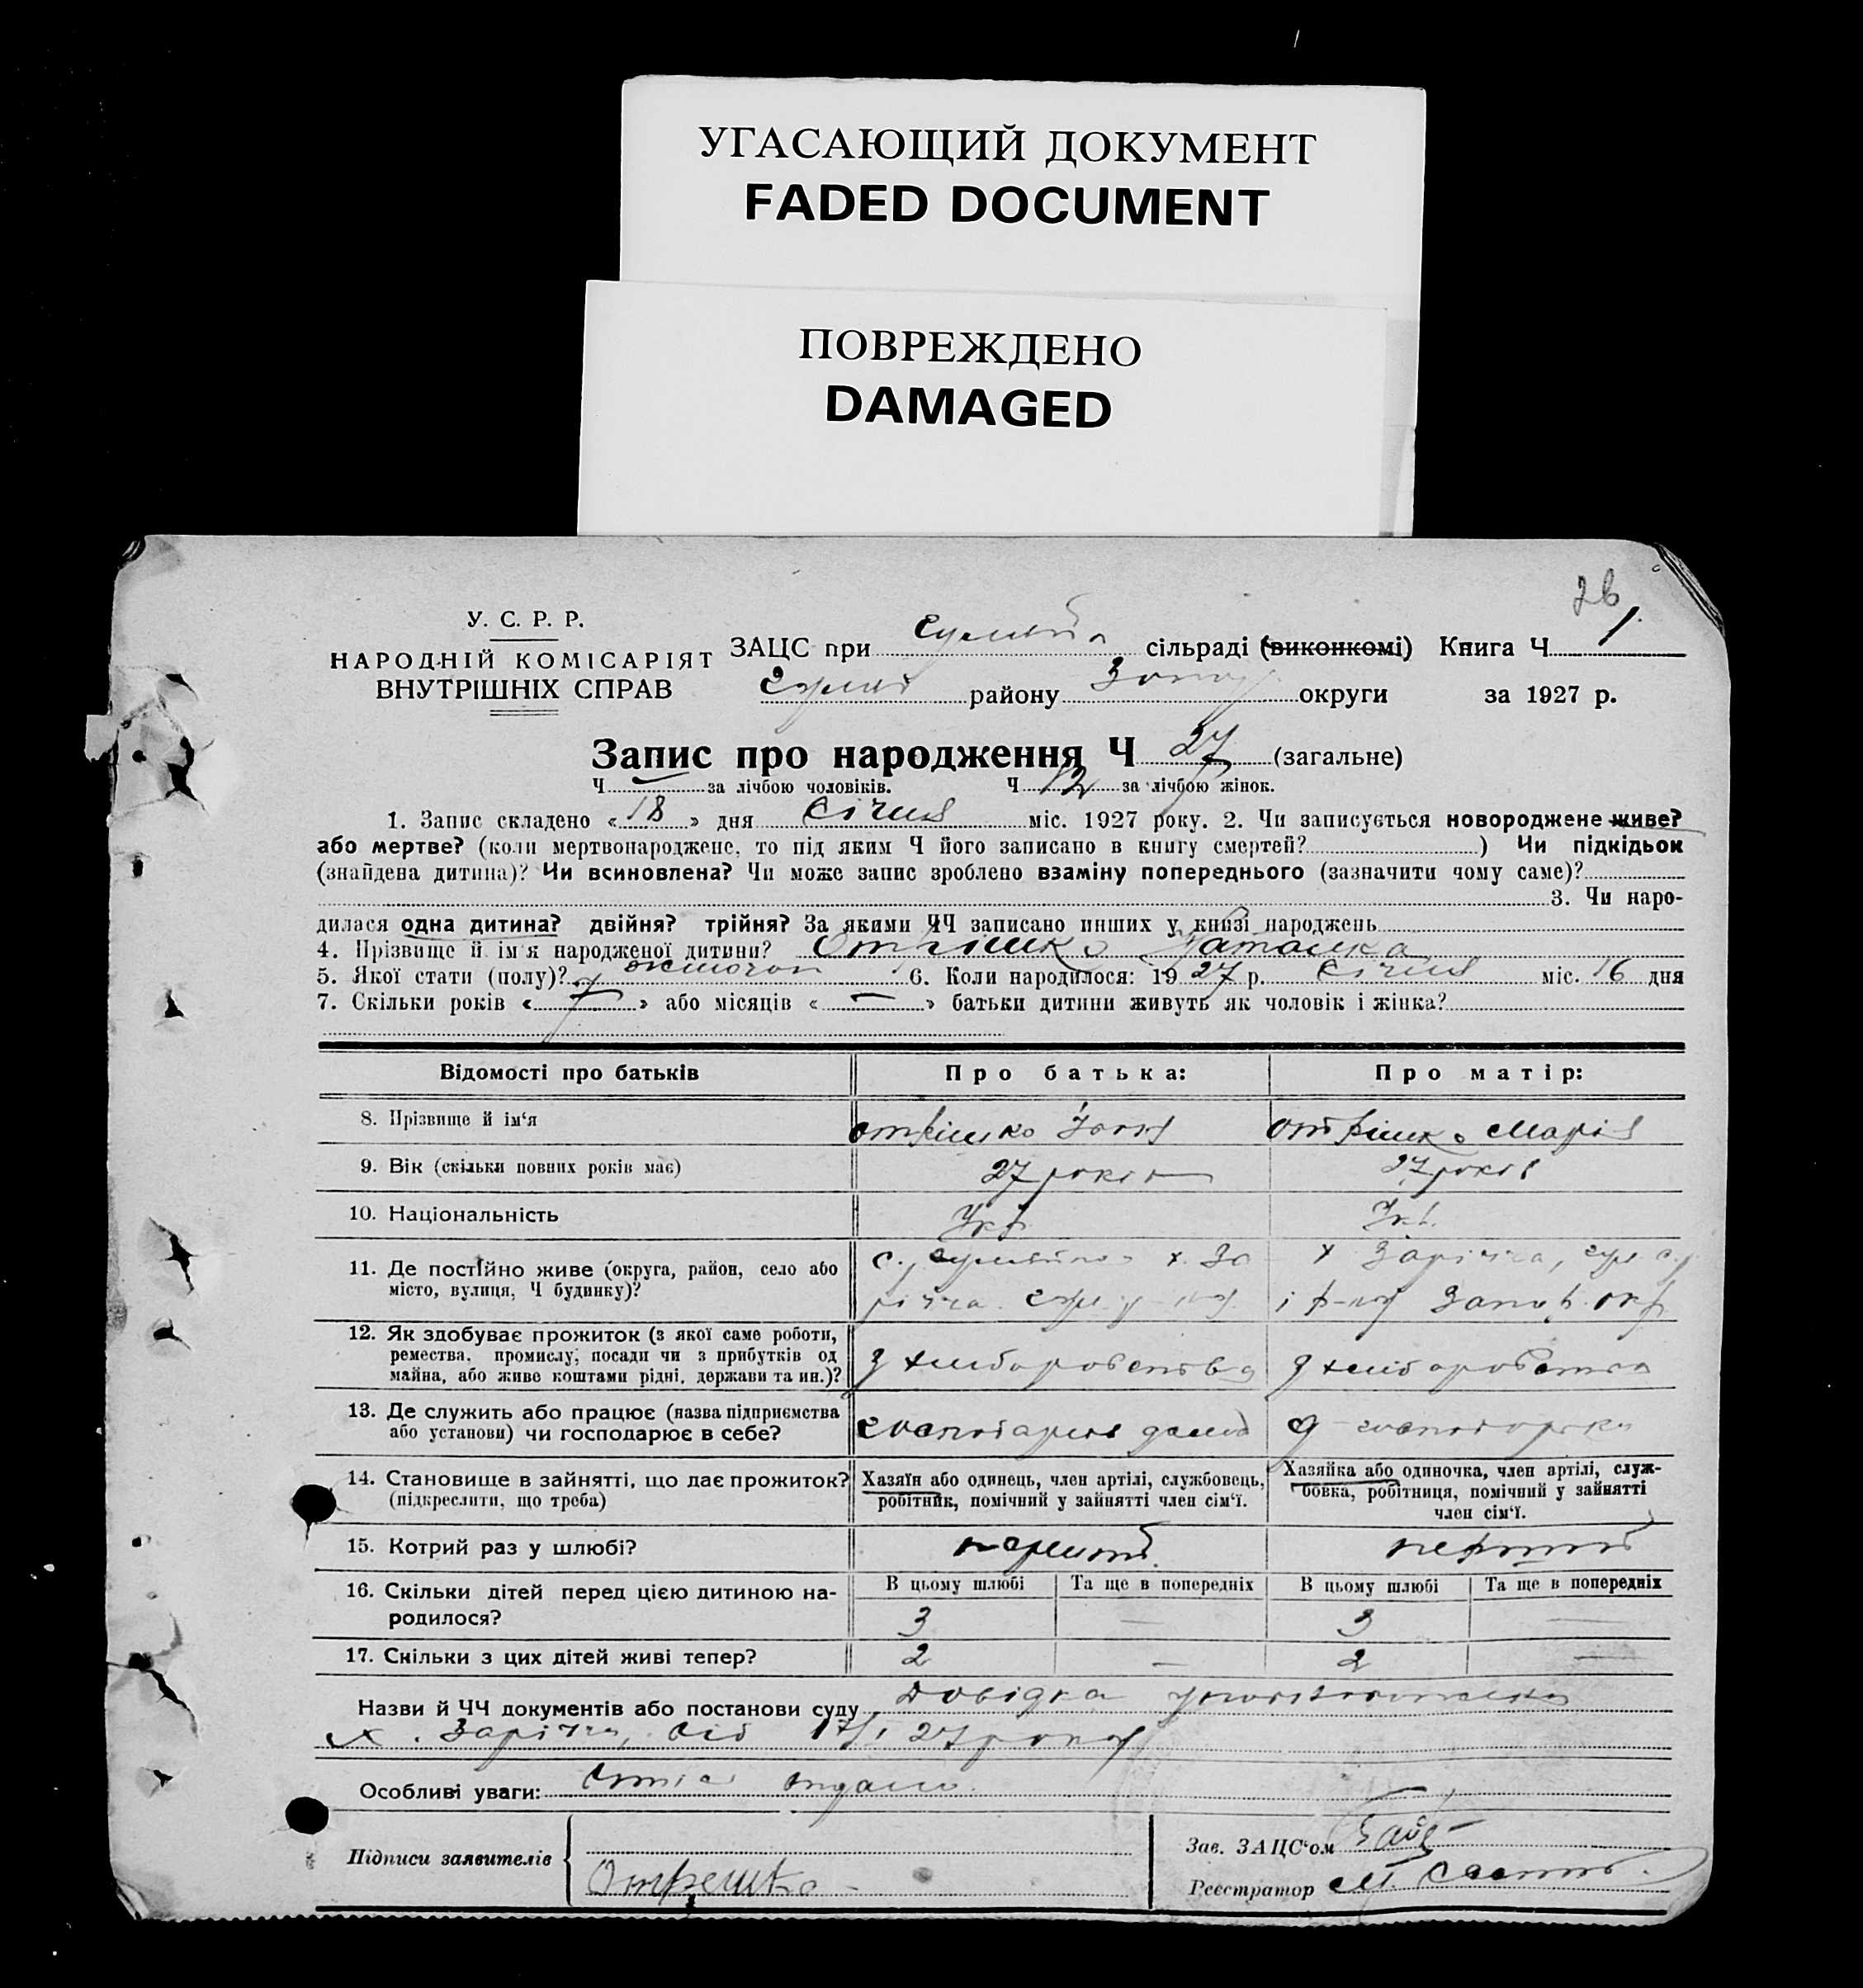 УГАСАЮЩИЙ ДОКУМЕНТ
FADED DOCUMENT
ПОВРЕЖДЕНО
DAMAGED
26
У. С. Р. Р.
НАРОДНІЙ КОМІСАРІЯТ
ВНУТРІШНІХ СПРАВ
ЗАЦС при сільраді (виконкомі) Книга Ч 1
району округи за 1927 р.
Запис про народження Ч 27 (загальне)
Ч — за лічбою чоловіків. Ч 12 за лічбою жінок.
1. Запис складено «18» дня Січня міс. 1927 року. 2. Чи записується новороджене живе?
або мертве? (коли мертвонароджене, то під яким Ч його записано в книгу смертей?) Чи підкідьок
(знайдена дитина)? Чи всиновлена? Чи може запис зроблено взаміну попереднього (зазначити чому саме)?
3. Чи наро-
дилася одна дитина? двійня? трійня? За якими ЧЧ записано инших у книзі народжень
4. Прізвище й ім'я народженої дитини? Отрішко Наталка
5. Якої стати (полу)? жіночоі 6. Коли народилося: 1927 р. Січня міс. 16 дня
7. Скільки років «7» або місяців «—» батьки дитини живуть як чоловік і жінка?
Відомості про батьків Про батька: Про матір:
8. Прізвище й ім'я Отрішко Отрішко Марія
9. Вік (скільки повних років має) 27 років 27 років
10. Національність Укр. Укр.
11. Де постійно живе (округа, район, село або
місто, вулиця, Ч будинку)?
х. Зо
х Зарічча,
річча. Запор. окр
12. Як здобуває прожиток (з якої саме роботи,
ремества, промислу, посади чи з прибутків од
майна, або живе коштами рідні, держави та ин.)?
з хліборобства з хліборобства
13. Де служить або працює (назва підприємства
або установи) чи господарює в себе?
14. Становище в зайнятті, що дає прожиток?
(підкреслити, що треба)
Хазяїн або одинець, член артілі, службовець,
робітник, помічний у зайнятті член сім'ї.
Хазяйка або одиночка, член артілі, служ-
бовка, робітниця, помічний у зайнятті
член сім'ї.
15. Котрий раз у шлюбі? перший перший
16. Скільки дітей перед цією дитиною на-
родилося?
В цьому шлюбі Та ще в попередніх В цьому шлюбі Та ще в попередніх
3 — 3 —
17. Скільки з цих дітей живі тепер? 2 — 2 —
Назви й ЧЧ документів або постанови суду Довідка
х. Зарічча, від 17/I 27 року
Особливі уваги:
Підписи заявителів
Отрешко
Зав. ЗАЦС'ом
Реєстратор